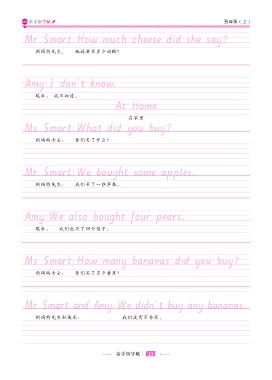 五年级(上)
Mr Smart: How much cheese did she say?
斯玛特先生: 她说要买多少奶酪?
Amy: I don't know.
埃米: 我不知道。
At Home
在家里
Ms Smart: What did you buy?
斯玛特女士: 你们买了什么?
Mr Smart: We bought some apples.
斯玛特先生: 我们买了一些苹果。
Amy: We also bought four pears.
埃米: 我们也买了四个梨子。
Ms Smart: How many bananas did you buy?
斯玛特女士: 你们买了多少香蕉?
Mr Smart and Amy: We didn't buy any bananas.
斯玛特先生和埃米: 我们没有买香蕉。